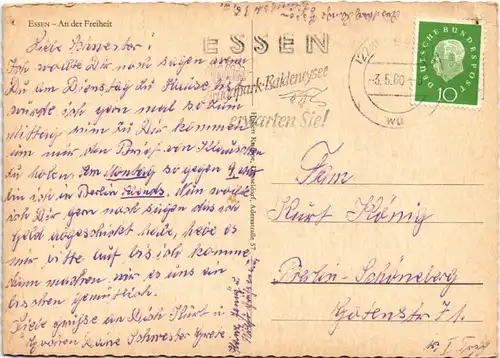 ESSEN – An der Freiheit
Liebe Schwester!
Ich wollte Dir nur sagen wenn
Du am Dienstag zu Hause bist
würde ich gern mal so zum
Mittag zum zu Dir kommen
um mir den Brief von Kläuschen
zu holen. Am Montag so gegen 9 Uhr
bin ich in Berlin Abends. Nun wollte
ich Dir gern noch sagen das ich
Geld abgeschickt habe, hebe es
mir bitte auf bis ich komme,
dann machen wir es uns ein
bisschen gemütlich.
Liebe Grüße an Dich Kurt u
Deine Schwester Grete
ESSEN
Baldeneysee
erwarten Sie!
-3.5.60
DEUTSCHE BUNDESPOST
10
Düsseldorf, Adersstraße 57
Fam
Kurt König
Berlin-Schöneberg
Gotenstr 71.